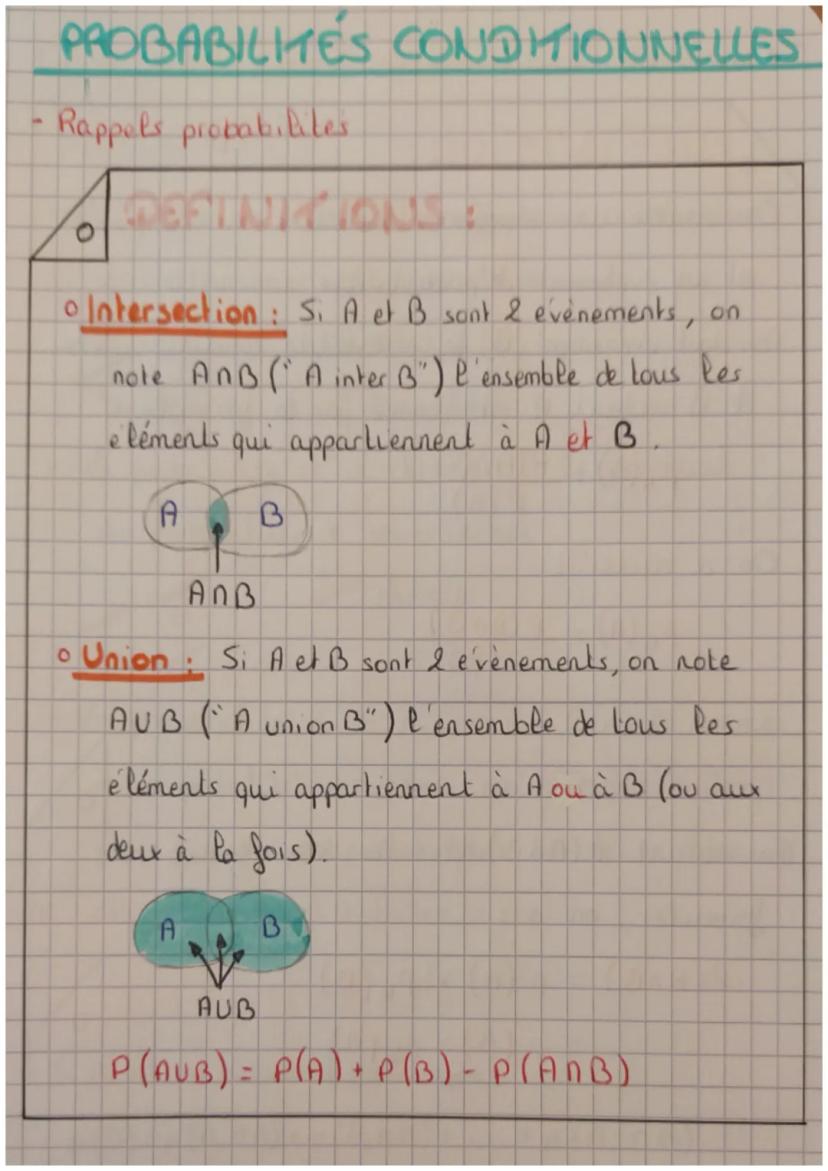 PROBABILITÉS CONDITIONNELLES
- Rappels probabilites
DEFINITIONS :
o Intersection : Si A et B sont 2 évènements, on
note A∩B ("A inter B") l'ensemble de tous les
éléments qui appartiennent à A et B.
A B
A∩B
o Union : Si A et B sont 2 évènements, on note
A∪B ("A union B") l'ensemble de tous les
éléments qui appartiennent à A ou à B (ou aux
deux à la fois).
A B
A∪B
P(A∪B) = P(A) + P(B) - P(A∩B)